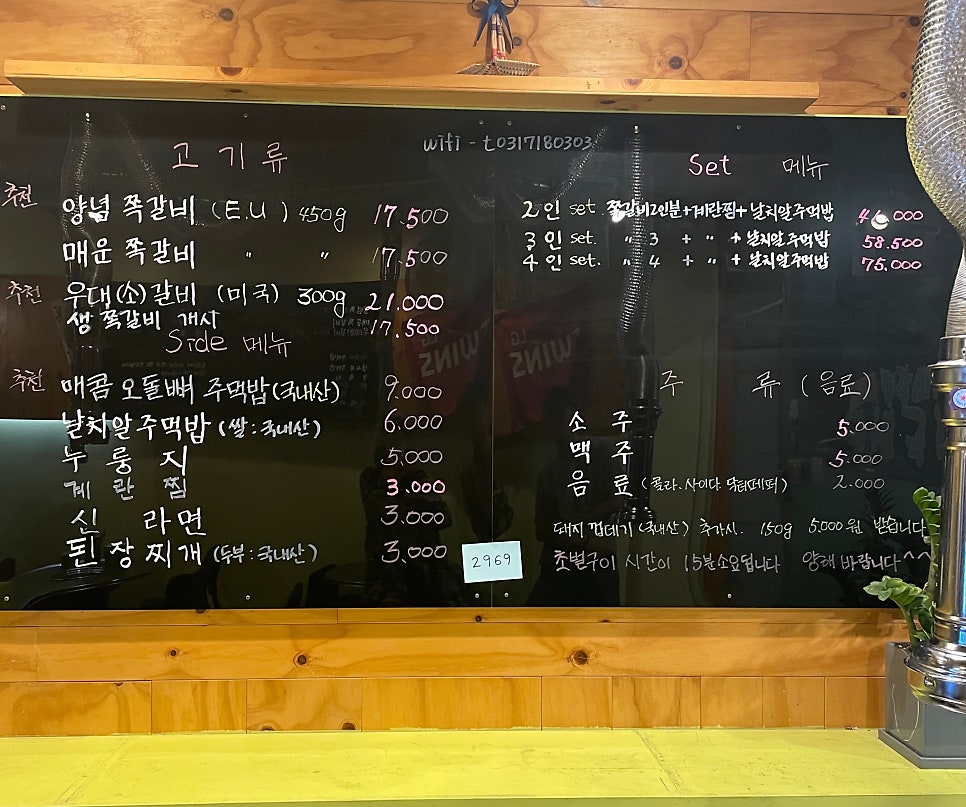 wifi - t0317180303
고기류
추천 양념 쪽갈비 (E.U) 450g 17.500
매운 쪽갈비 〃 〃 17.500
추천 우대(소)갈비 (미국) 300g 21.000
생 쪽갈비 개시 17.500
Side 메뉴
추천 매콤 오돌뼈 주먹밥(국내산) 9.000
날치알주먹밥 (쌀:국내산) 6.000
누룽지 5.000
계란찜 3.000
신라면 3.000
된장찌개 (두부:국내산) 3.000
2969
Set 메뉴
2인 set. 쪽갈비2인분+계란찜+날치알주먹밥
3인 set. 〃 3 + 〃 + 날치알주먹밥 58.500
4인 set. 〃 4 + 〃 + 날치알주먹밥 75,000
주 류 (음료)
소 주 5.000
맥 주 5.000
음 료 (콜라.사이다 닥터페퍼) 2.000
돼지 껍데기 (국내산) 추가시. 150g 5.000원 받습니다
초벌구이 시간이 15분소요됩니다 양해 바랍니다^^